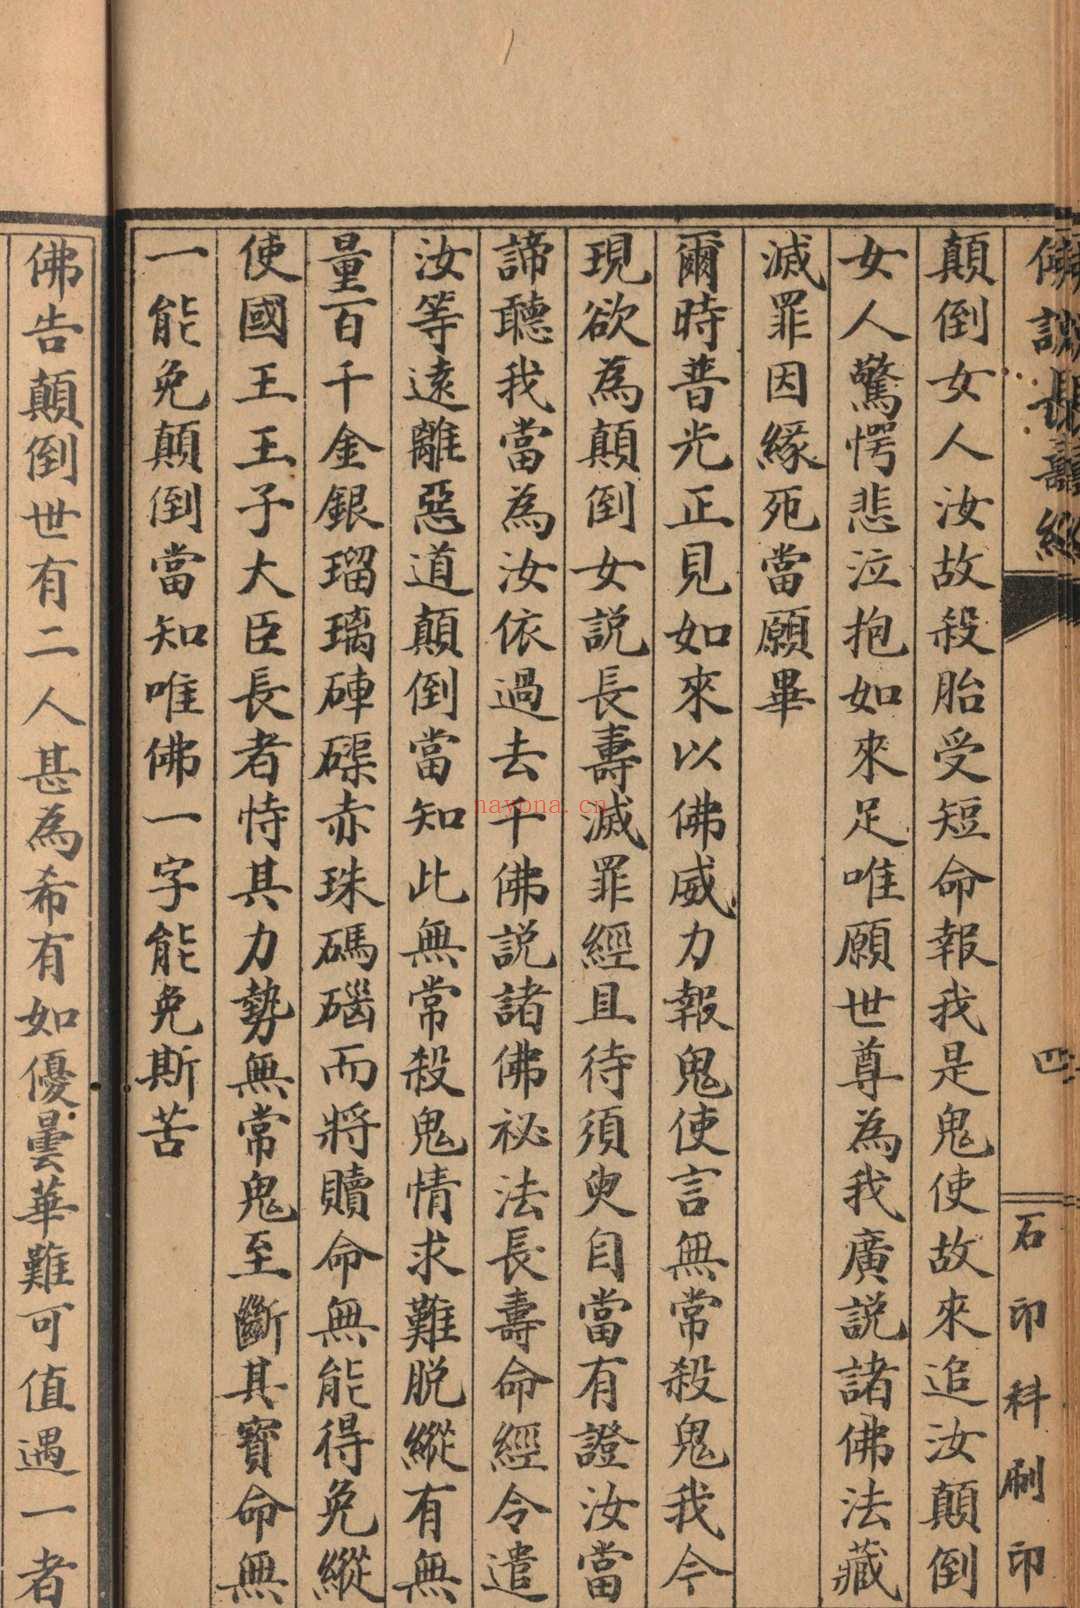 佛說長壽經
四
石印科刷印
顛倒女人汝故殺胎受短命報我是鬼使故來追汝顛倒
女人驚愕悲泣抱如來足唯願世尊為我廣說諸佛法藏
滅罪因緣死當願畢
爾時普光正見如來以佛威力報鬼使言無常殺鬼我今
現欲為顛倒女說長壽滅罪經且待須臾自當有證汝當
諦聽我當為汝依過去千佛說諸佛祕法長壽命經令遣
汝等遠離惡道顛倒當知此無常殺鬼情求難脫縱有無
量百千金銀瑠璃硨磲赤珠碼碯而將贖命無能得免縱
使國王王子大臣長者恃其力勢無常鬼至斷其寶命無
一能免顛倒當知唯佛一字能免斯苦
佛告顛倒世有二人甚為希有如優曇華難可值遇一者
nayona.cn